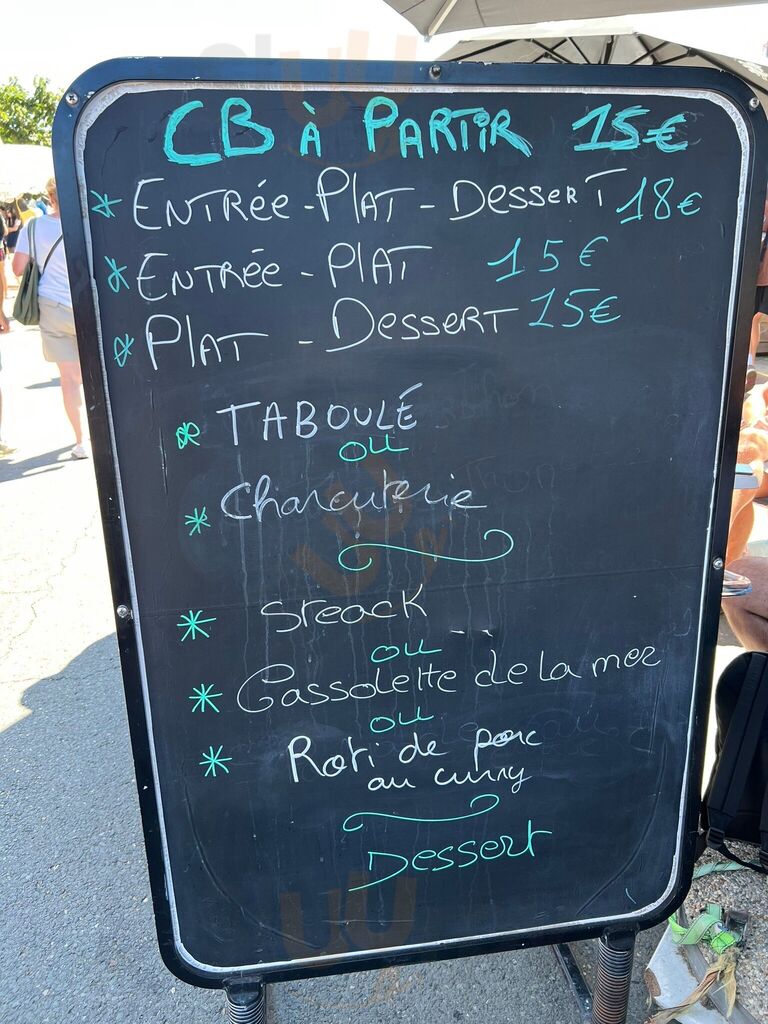 CB À PARTIR 15€
* ENTRÉE - PLAT - DESSERT 18€
* ENTRÉE - PLAT 15€
* PLAT - DESSERT 15€
* TABOULÉ
ou
* Charcuterie
* Steack
ou
* Cassolette de la mer
ou
* Roti de porc
au curry
Dessert